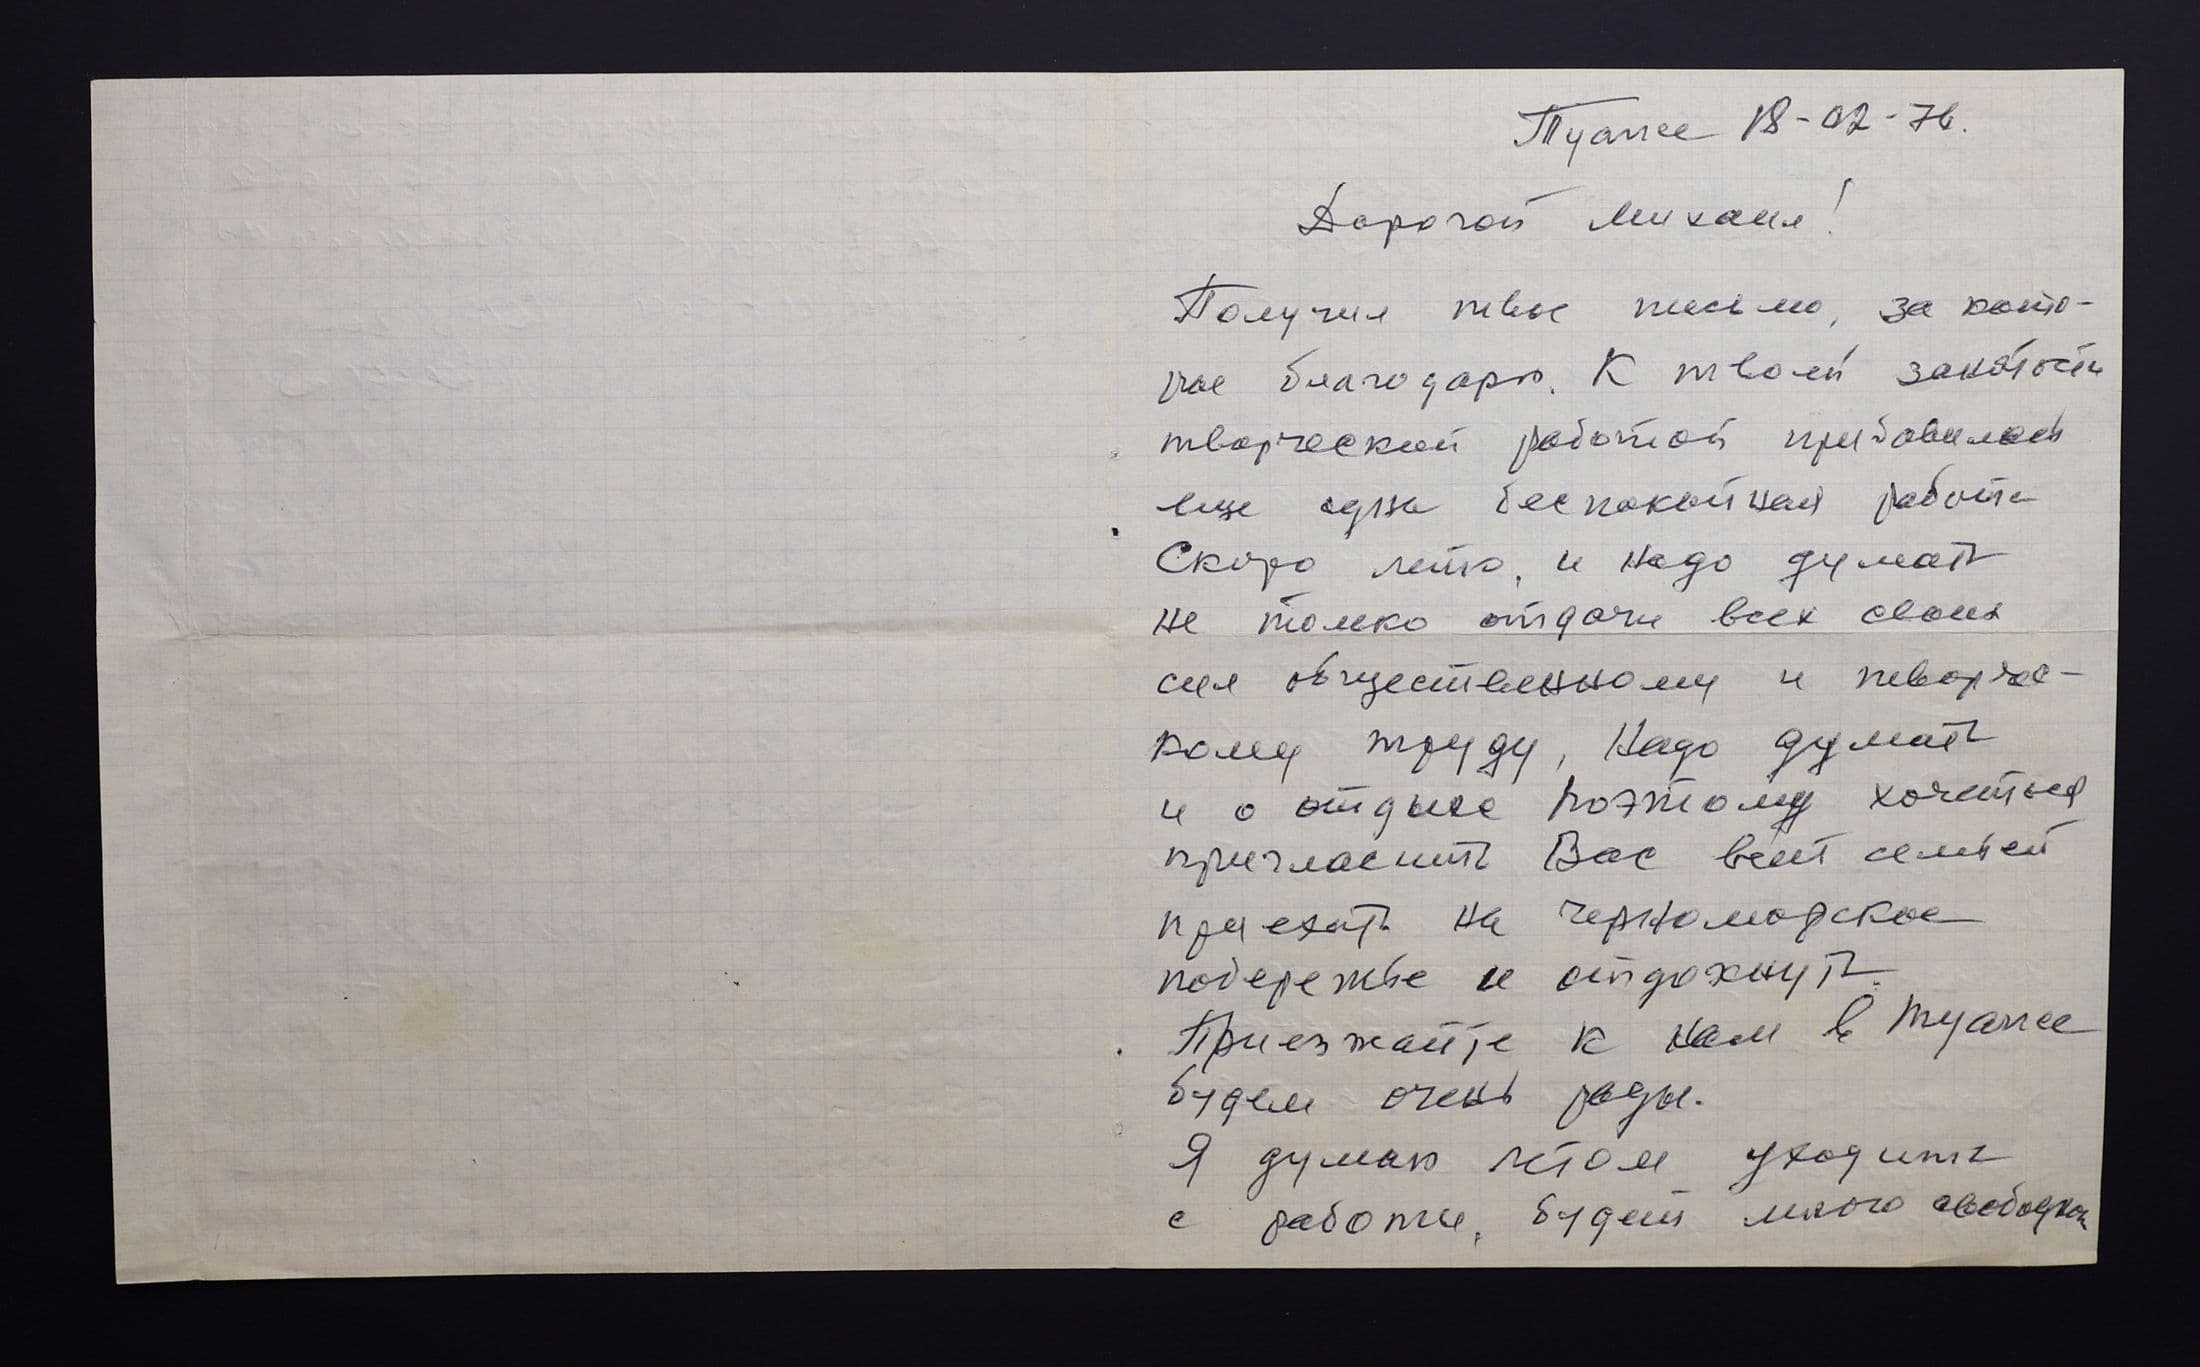 Туапсе 18-02-76.
Дорогой Михаил!
Получил твое письмо, за кото-
рое благодарю. К твоей занятости
творческой работой прибавилась
еще одна беспокойная работа
Скоро лето, и надо думать
не только отдачи всех своих
сил общественному и творчес-
кому труду, надо думать
и о отдыхе поэтому хочеться
пригласить Вас всей семьей
приехать на черноморское
побережье и отдохнуть.
Приезжайте к нам в Туапсе
будем очень рады.
Я думаю летом уходить
с работы, будет много свободного